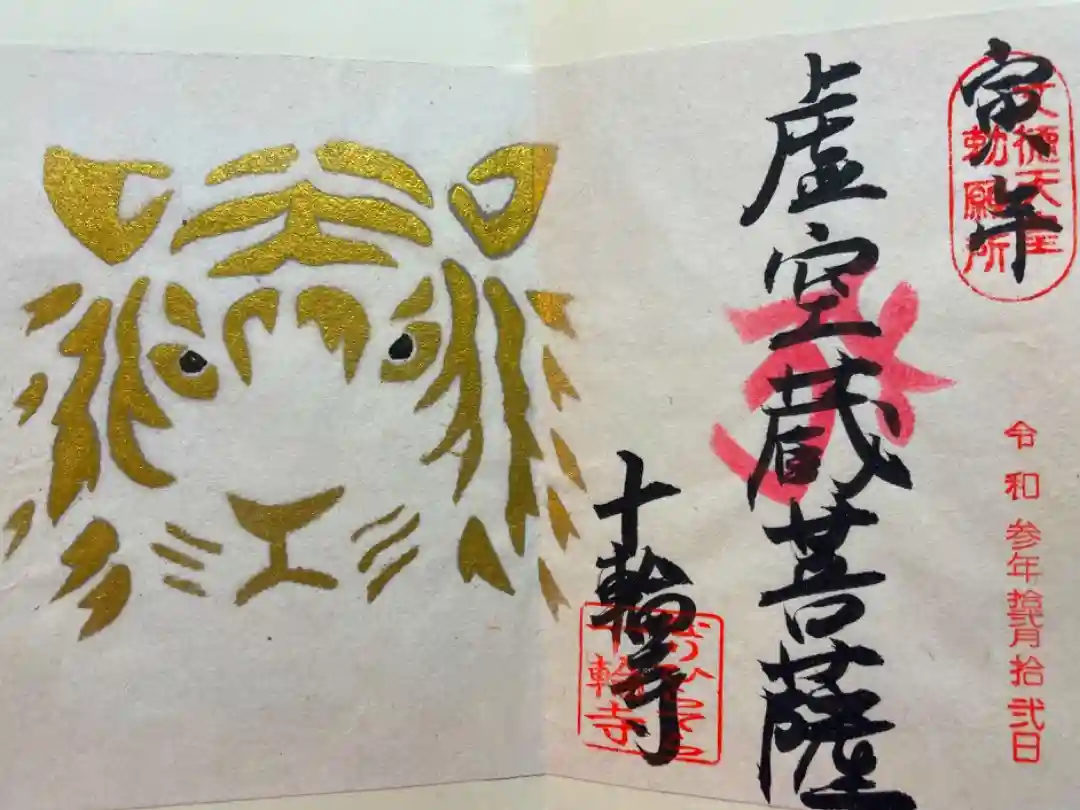 寅年
文徳天皇
勅願所
令和参年拾弐月拾弐日
虚空蔵菩薩
十輪寺
十輪寺